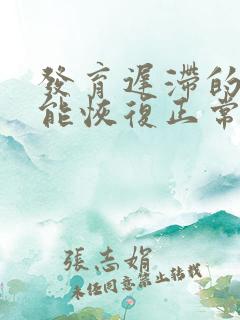 發育遲滯的
能恢復正常
張志娟
未任同意禁止轉載